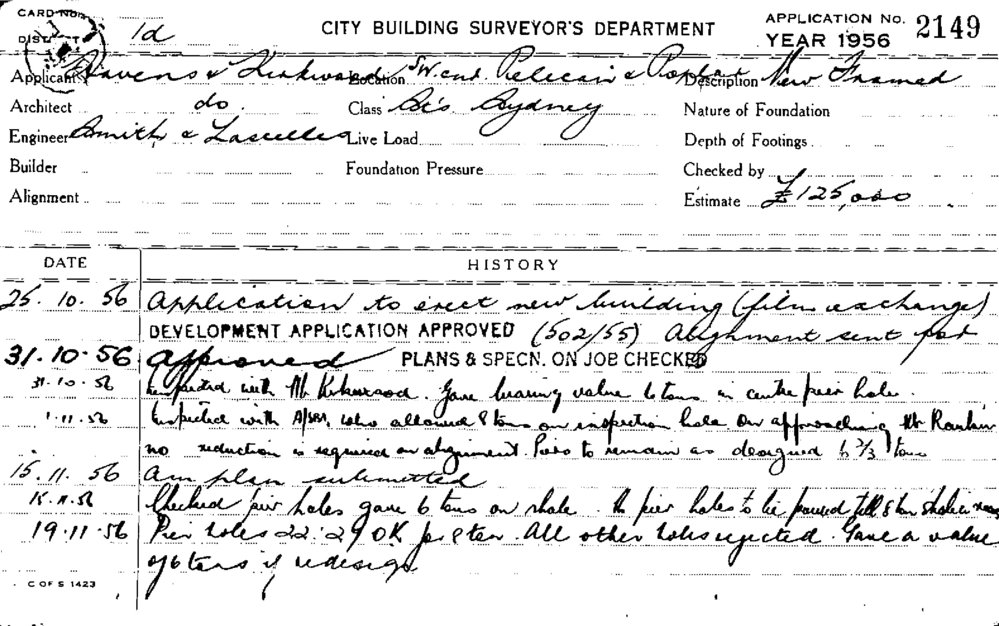 CARD No.
DISTRICT 1d
CITY BUILDING SURVEYOR'S DEPARTMENT
APPLICATION No. 2149
YEAR 1956
Applicant Havens & Kirkwood Location SW cnr. Pelican & Poplar Description New Framed
Architect do. Class Bi's Sydney Nature of Foundation
Engineer Smith & Lascelles Live Load Depth of Footings
Builder Foundation Pressure Checked by
Alignment Estimate £125,000
DATE HISTORY
25.10.56 Application to erect new building (film exchange)
DEVELOPMENT APPLICATION APPROVED (502/55) Alignment sent for
31.10.56 Approved PLANS & SPECN. ON JOB CHECKED
31.10.56 Inspected with Mr Kirkwood. Gave bearing value 6 tons in centre pier hole.
1.11.56 Inspected with who allowed 8 tons on inspection hole On approaching Mr Rankin
no reduction is required on alignment. Piers to remain as designed 6 2/3 tons
15.11.56 Am plan submitted
15.11.56 Checked pier holes gave 6 tons on shale. pier holes to be till 8 ton shale is
19.11.56 Pier holes 22.29 OK for 8 ton. All other holes rejected. Gave a value
of 6 tons if redesign.
C OF S 1423